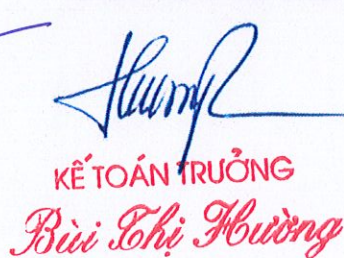 Hường
KẾ TOÁN TRƯỞNG
Bùi Thị Hường